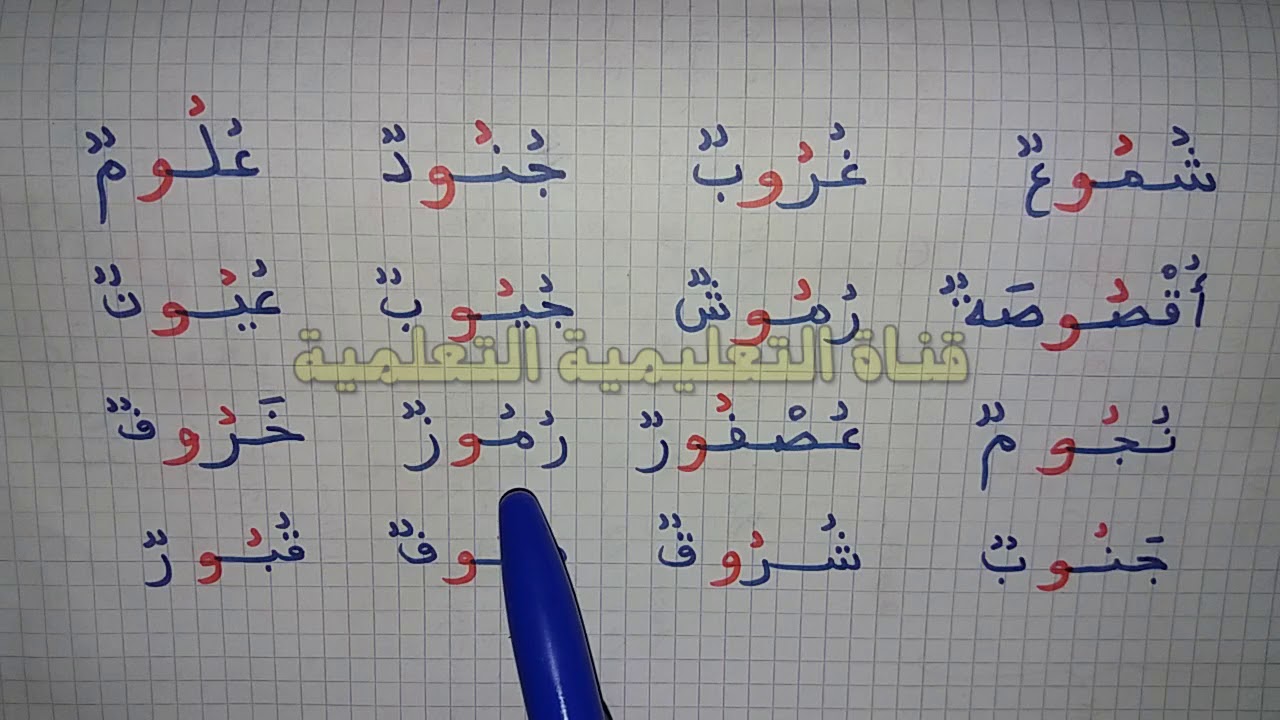 شُمُوعٌ غُرُوبٌ جُنُودٌ عُلُومٌ
أُقْصُوصَةٌ رُمُوشٌ جُيُوبٌ عُيُونٌ
قناة التعليمية التعلمية
نُجُومٌ عُصْفُورٌ رُمُوزٌ خَرُوفٌ
جَنُوبٌ شُرُوقٌ قُبُورٌ